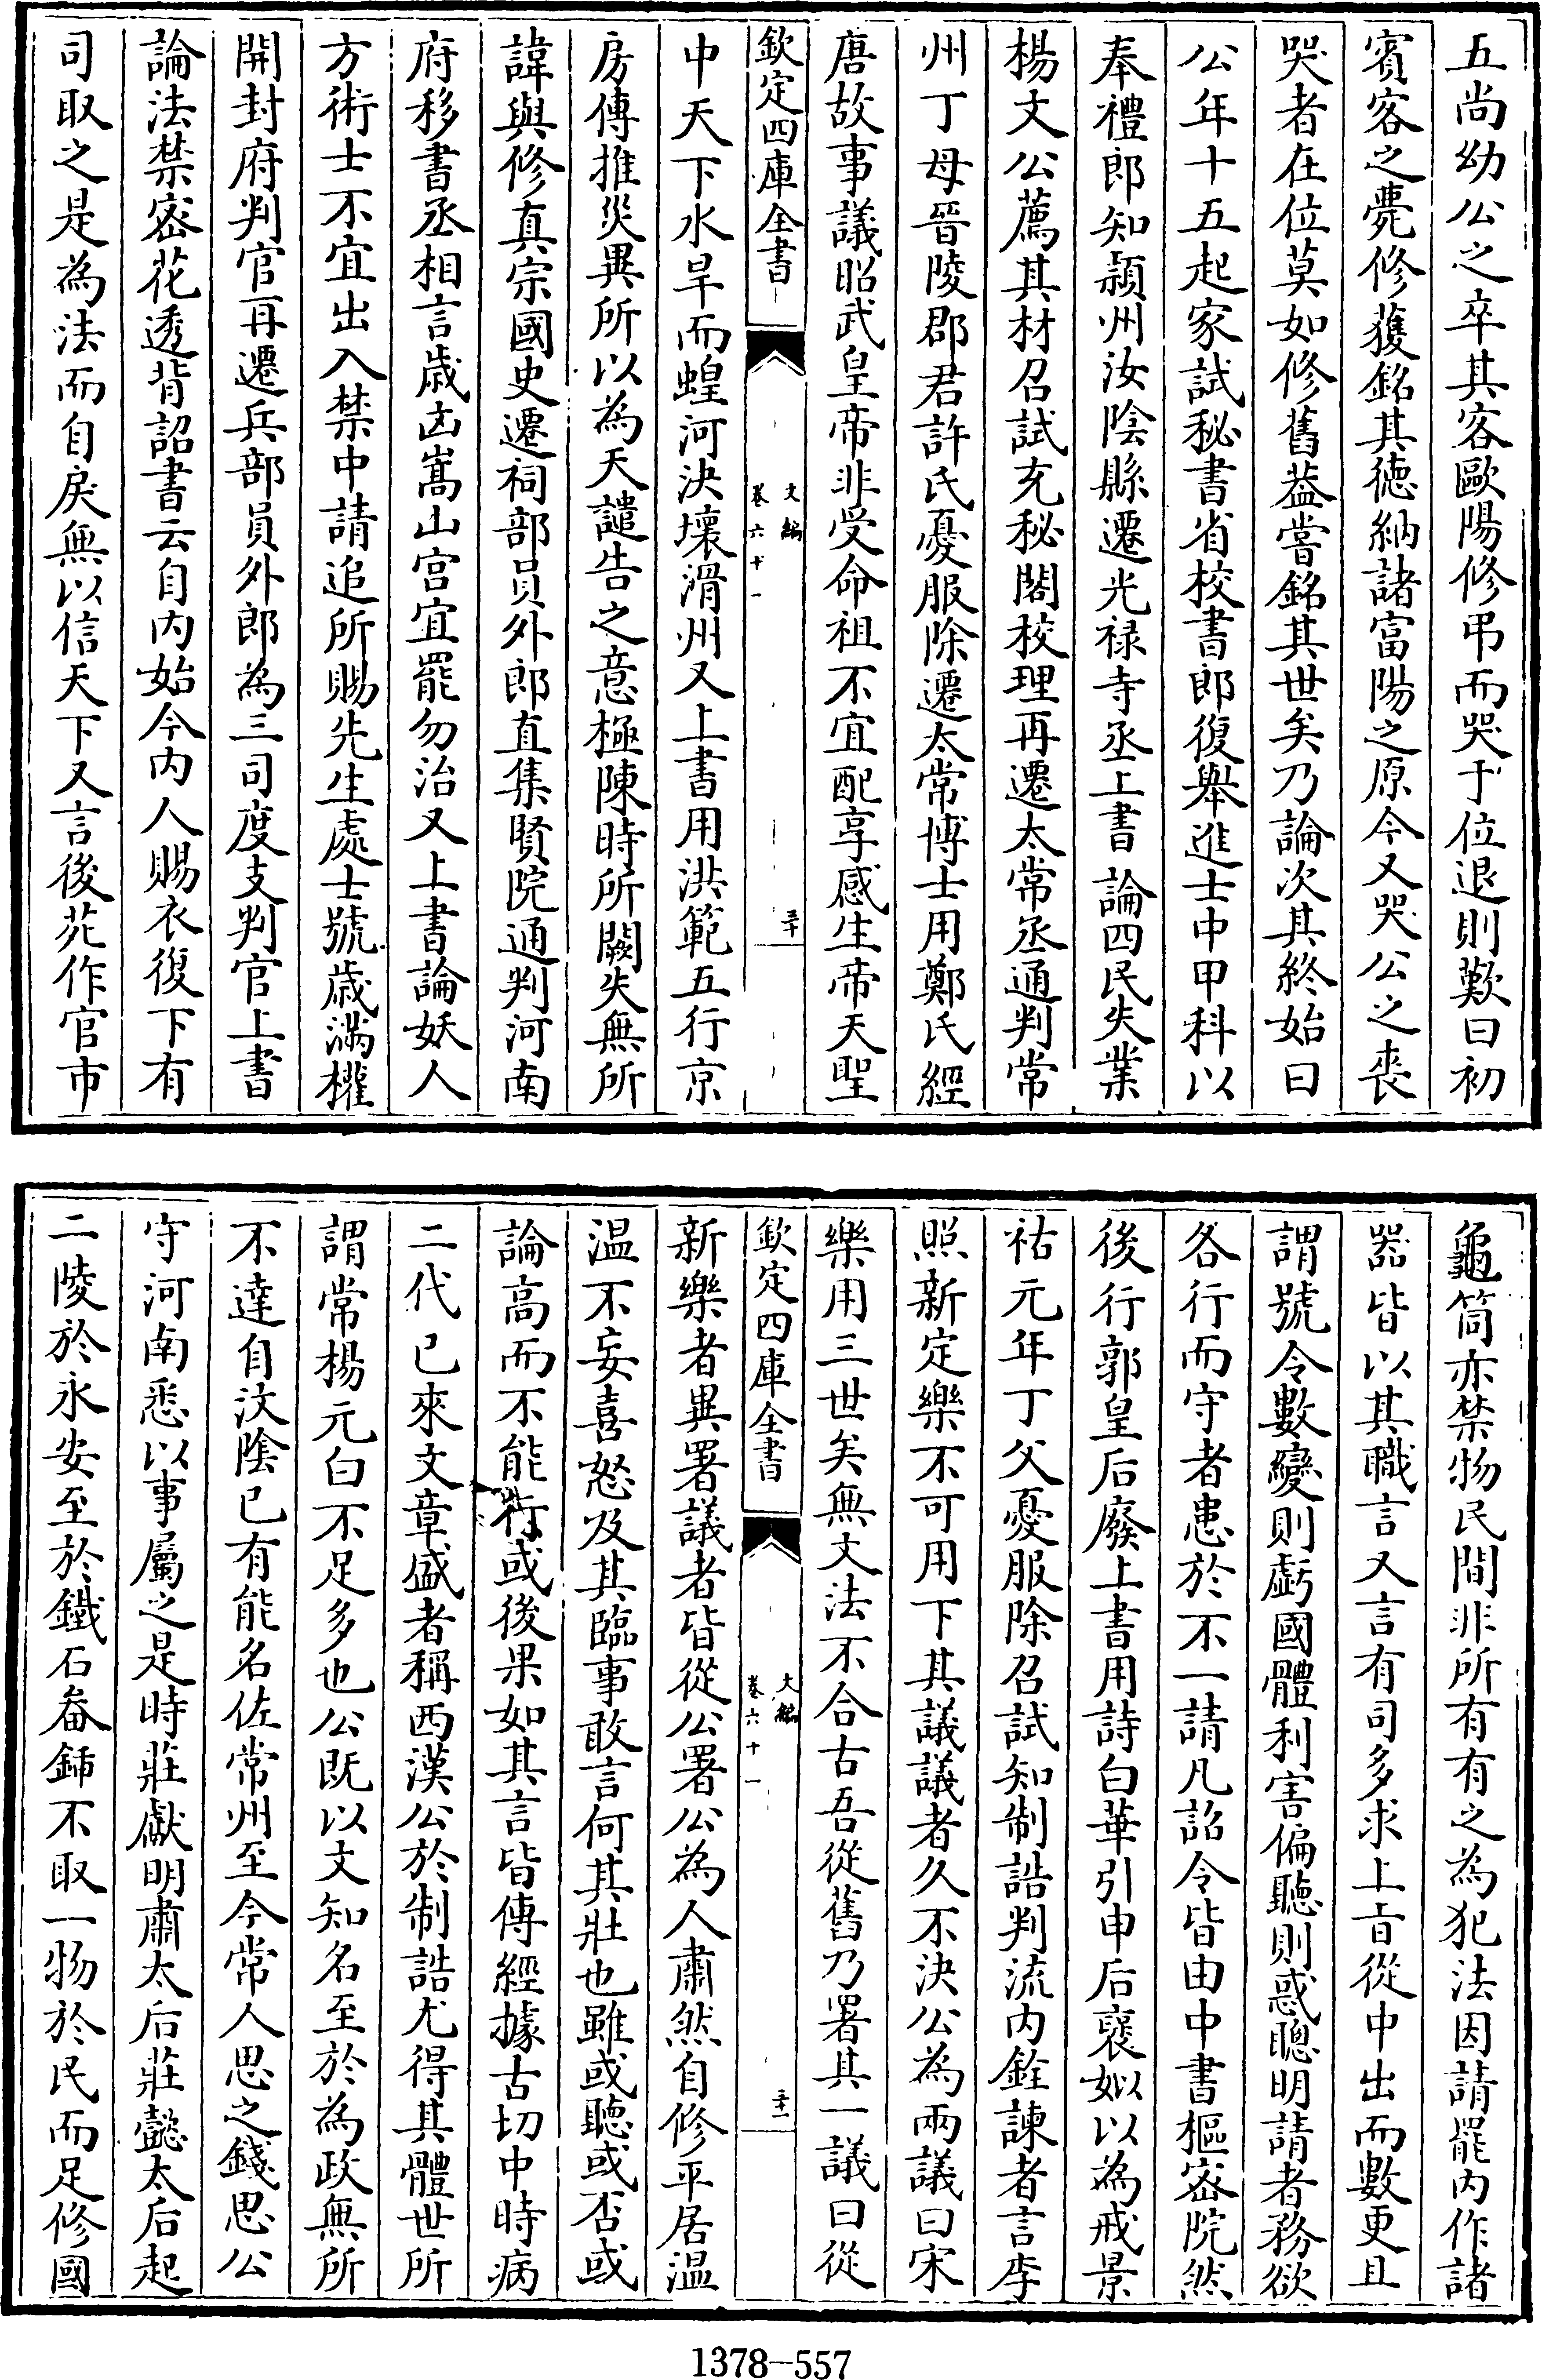 五尚幼公之卒其客歐陽修弔而哭于位退則歎曰初
賓客之薨修獲銘其德納諸富陽之原今又哭公之喪
哭者在位莫如修舊葢嘗銘其世矣乃論次其終始曰
公年十五起家試秘書省校書郎復舉進士中甲科以
奉禮郎知頴州汝陰縣遷光禄寺丞上書論四民失業
楊文公薦其材召試充秘閣校理再遷太常丞通判常
州丁母晉陵郡君許氏憂服除遷太常博士用鄭氏經
唐故事議昭武皇帝非受命祖不宜配享感生帝天聖
欽定四庫全書
文編
卷六十一
三十
中天下水旱而蝗河決壞滑州又上書用洪範五行京
房傳推災異所以為天譴告之意極陳時所闕失無所
諱與修真宗國史遷祠部員外郎直集賢院通判河南
府移書丞相言歳凶嵩山宫宜罷勿治又上書論妖人
方術士不宜出入禁中請追所賜先生處士號歳滿權
開封府判官再遷兵部員外郎為三司度支判官上書
論法禁密花透背詔書云自内始今内人賜衣復下有
司取之是為法而自戾無以信天下又言後苑作官市
龜筒亦禁物民間非所有有之為犯法因請罷内作諸
器皆以其職言又言有司多求上㫖從中出而數更且
謂號令數變則虧國體利害偏聽則惑聰明請者務欲
各行而守者患於不一請凡詔令皆由中書樞密院然
後行郭皇后廢上書用詩白華引申后襃姒以為戒景
祐元年丁父憂服除召試知制誥判流内銓諫者言李
照新定樂不可用下其議議者久不決公為兩議曰宋
樂用三世矣無文法不合古吾從舊乃署其一議曰從
欽定四庫全書
文編
卷六十一
三十一
新樂者異署議者皆從公署公為人肅然自修平居温
温不妄喜怒及其臨事敢言何其壯也雖或聽或否或
論高而不能行或後果如其言皆傳經據古切中時病
二代已來文章盛者稱西漢公於制誥尤得其體世所
謂常楊元白不足多也公既以文知名至於為政無所
不達自汶隂已有能名佐常州至今常人思之錢思公
守河南悉以事屬之是時莊獻明肅太后莊懿太后起
二陵於永安至於鐵石畚鍤不取一物於民而足修國
1378-557